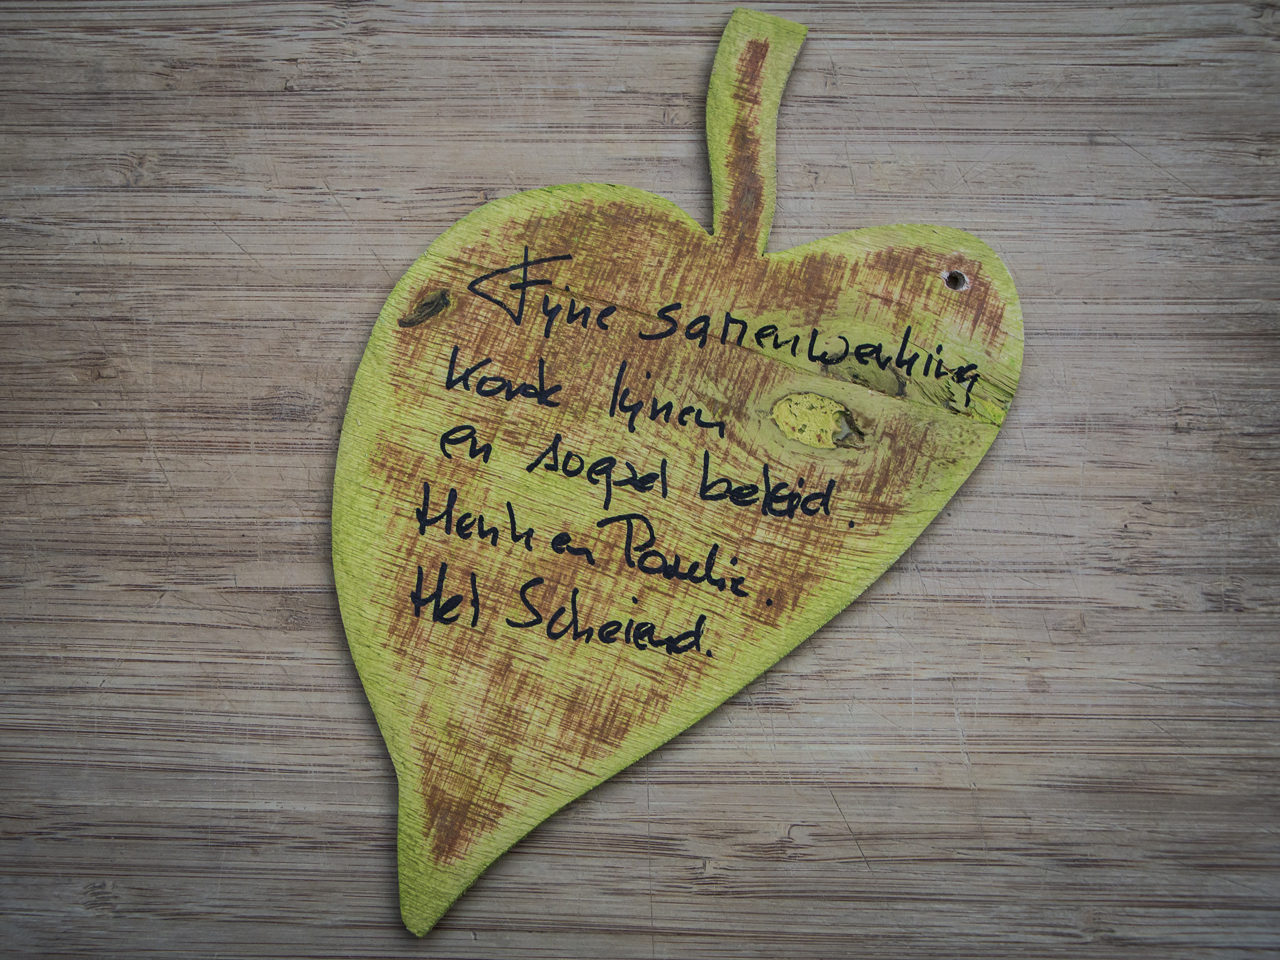 Fijne samenwerking
Korte lijnen
en soepel beleid.
Henk en
Het Scheiend.